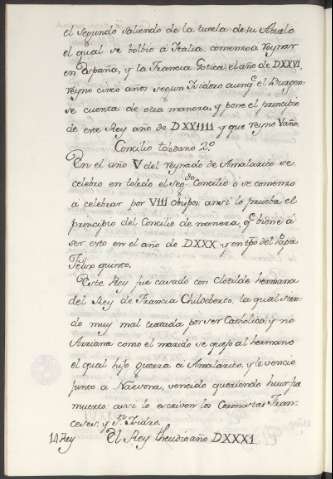 el segundo saliendo de la tutela de su Abuelo
el qual se bolbio a Italia comenzo a reynar
en España, y la Francia Gotica el año de DXXVI
reyno cinco años segun Isidoro aunq̃ el Burgen
se cuenta de otra manera, y pone el principio
de este Rey año de DXXIIII y que reyno V años
Concilio toledano 2º
En el año V del reynado de Amalarico se
celebro en toledo el segdo Concilio o se comenzo
a celebrar por VIII Obispos ansi lo prueba el
principio del Concilio de manera, q̃ biene á
ser esto en el año de DXXX y en tpo del Papa
Felix quinto.
Este Rey fue casado con Clotilde hermana
del Rey de Francia Childeberto, la qual sien
do muy mal tratada por ser Catholica, y no
Arriana como el marido se quejo al hermano
el qual hizo guerra a Amalarico, y le vencio
junto a Narvona, vencido queriendo huir fue
muerto ansi lo escriven los Coronistas Fran
ceses, y Sn Isidro.
14 Rey El Rey theudio año DXXXI